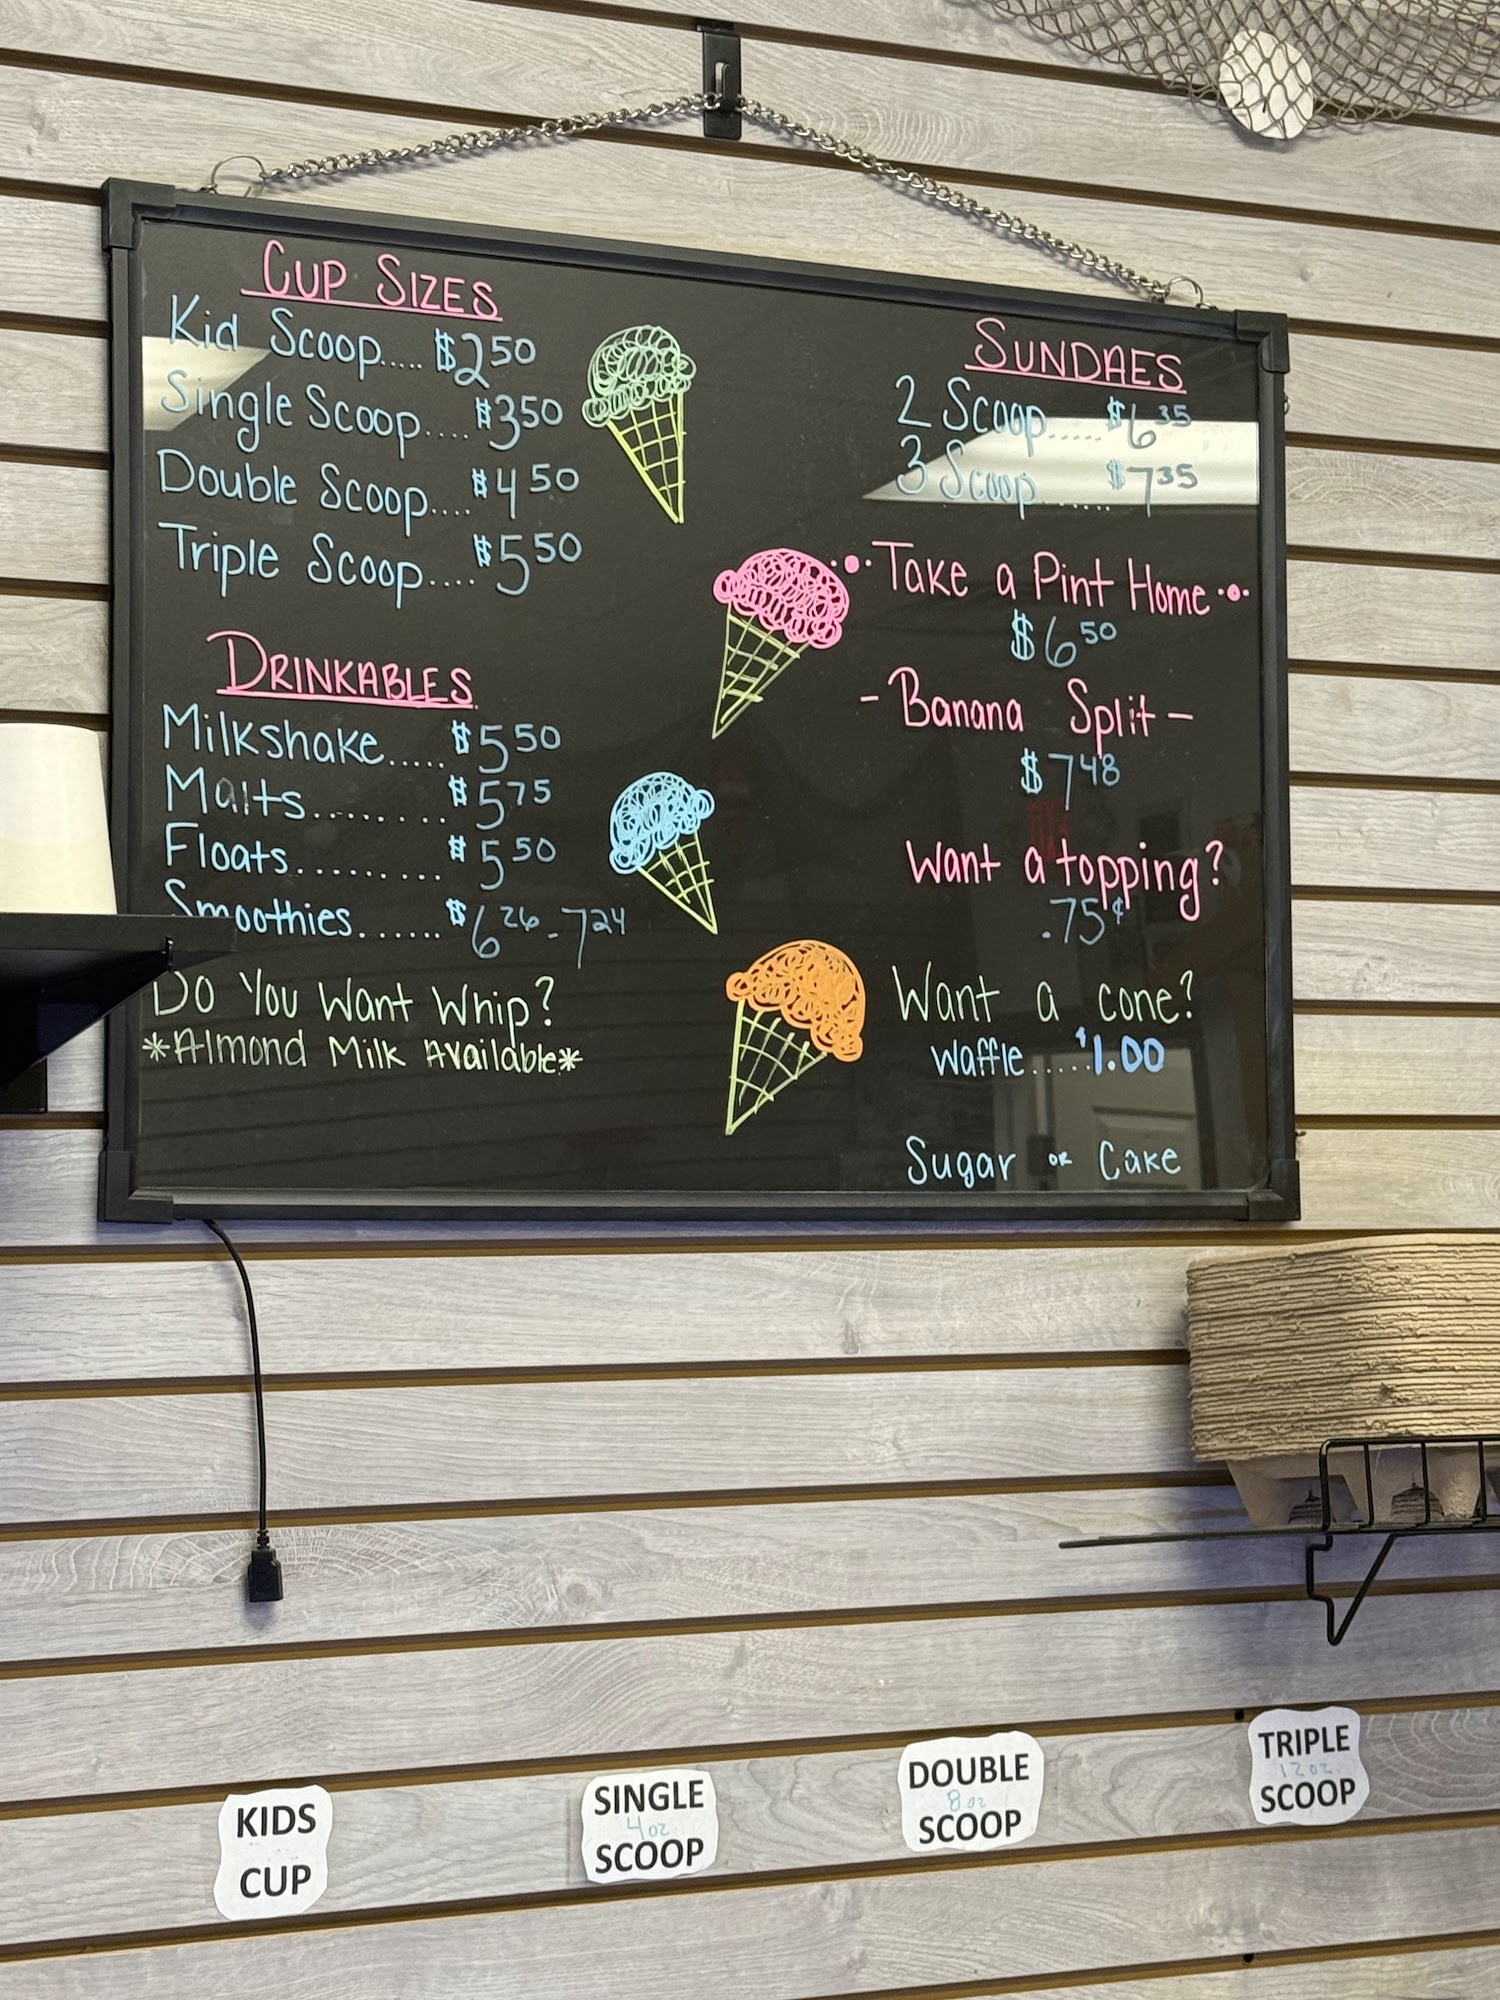 CUP SIZES
Kid Scoop..... $2.50
Single Scoop.... $3.50
Double Scoop.... $4.50
Triple Scoop.... $5.50
DRINKABLES
Milkshake..... $5.50
Malts........ $5.75
Floats......... $5.50
Smoothies...... $6.26-7.24
Do You Want Whip?
*Almond Milk Available*
SUNDAES
2 Scoop..... $6.35
3 Scoop...... $7.35
Take a Pint Home
$6.50
- Banana Split -
$7.48
Want a topping?
.75¢
Want a cone?
Waffle..... $1.00
Sugar or Cake
KIDS
CUP
SINGLE
4oz.
SCOOP
DOUBLE
8oz
SCOOP
TRIPLE
12oz.
SCOOP